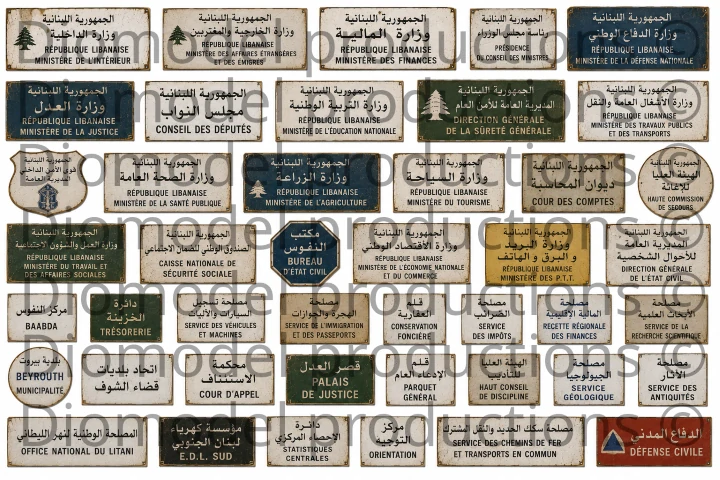 الجمهورية اللبنانية
وزارة الداخلية
RÉPUBLIQUE LIBANAISE
MINISTÈRE DE L'INTÉRIEUR
الجمهورية اللبنانية
وزارة الخارجية والمغتربين
RÉPUBLIQUE LIBANAISE
MINISTÈRE DES AFFAIRES ÉTRANGÈRES
ET DES ÉMIGRÉS
الجمهورية اللبنانية
وزارة المالية
RÉPUBLIQUE LIBANAISE
MINISTÈRE DES FINANCES
الجمهورية اللبنانية
رئاسة مجلس الوزراء
PRÉSIDENCE
DU CONSEIL DES MINISTRES
الجمهورية اللبنانية
وزارة الدفاع الوطني
RÉPUBLIQUE LIBANAISE
MINISTÈRE DE LA DÉFENSE NATIONALE
الجمهورية اللبنانية
وزارة العدل
RÉPUBLIQUE LIBANAISE
MINISTÈRE DE LA JUSTICE
الجمهورية اللبنانية
مجلس النواب
CONSEIL DES DÉPUTÉS
الجمهورية اللبنانية
وزارة التربية الوطنية
RÉPUBLIQUE LIBANAISE
MINISTÈRE DE L'ÉDUCATION NATIONALE
الجمهورية اللبنانية
المديرية العامة للأمن العام
DIRECTION GÉNÉRALE
DE LA SÛRETÉ GÉNÉRALE
الجمهورية اللبنانية
وزارة الأشغال العامة والنقل
RÉPUBLIQUE LIBANAISE
MINISTÈRE DES TRAVAUX PUBLICS
ET DES TRANSPORTS
الجمهورية اللبنانية
قوى الأمن الداخلي
المديرية العامة
الجمهورية اللبنانية
وزارة الصحة العامة
RÉPUBLIQUE LIBANAISE
MINISTÈRE DE LA SANTÉ PUBLIQUE
الجمهورية اللبنانية
وزارة الزراعة
RÉPUBLIQUE LIBANAISE
MINISTÈRE DE L'AGRICULTURE
الجمهورية اللبنانية
وزارة السياحة
RÉPUBLIQUE LIBANAISE
MINISTÈRE DU TOURISME
الجمهورية اللبنانية
ديوان المحاسبة
COUR DES COMPTES
الجمهورية اللبنانية
الهيئة العليا
للإغاثة
HAUTE COMMISSION
DE SECOURS
الجمهورية اللبنانية
وزارة العمل والشؤون الاجتماعية
RÉPUBLIQUE LIBANAISE
MINISTÈRE DU TRAVAIL ET
DES AFFAIRES SOCIALES
الجمهورية اللبنانية
الصندوق الوطني للضمان الاجتماعي
CAISSE NATIONALE DE
SÉCURITÉ SOCIALE
مكتب
النفوس
BUREAU
D'ÉTAT CIVIL
الجمهورية اللبنانية
وزارة الاقتصاد الوطني
RÉPUBLIQUE LIBANAISE
MINISTÈRE DE L'ÉCONOMIE NATIONALE
ET DU COMMERCE
الجمهورية اللبنانية
وزارة البريد
و البرق و الهاتف
RÉPUBLIQUE LIBANAISE
MINISTÈRE DES P.T.T.
الجمهورية اللبنانية
المديرية العامة
للأحوال الشخصية
DIRECTION GÉNÉRALE
DE L'ÉTAT CIVIL
مركز النفوس
BAABDA
دائرة
الخزينة
TRÉSORERIE
مصلحة تسجيل
السيارات والآليات
SERVICE DES VÉHICULES
ET MACHINES
مصلحة
الهجرة والجوازات
SERVICE DE L'IMMIGRATION
ET DES PASSEPORTS
قلم
العقارية
CONSERVATION
FONCIÈRE
مصلحة
الضرائب
SERVICE
DES IMPÔTS
مصلحة
المالية الإقليمية
RECETTE RÉGIONALE
DES FINANCES
مصلحة
الأبحاث العلمية
SERVICE DE LA
RECHERCHE SCIENTIFIQUE
بلدية بيروت
BEYROUTH
MUNICIPALITÉ
اتحاد بلديات
قضاء الشوف
محكمة
الاستئناف
COUR D'APPEL
قصر العدل
PALAIS
DE JUSTICE
قلم
الإدعاء العام
PARQUET
GÉNÉRAL
الهيئة العليا
للتأديب
HAUT CONSEIL
DE DISCIPLINE
مصلحة
الجيولوجيا
SERVICE
GÉOLOGIQUE
مصلحة
الآثار
SERVICE DES
ANTIQUITÉS
المصلحة الوطنية لنهر الليطاني
OFFICE NATIONAL DU LITANI
مؤسسة كهرباء
لبنان الجنوبي
E.D.L. SUD
دائرة
الإحصاء المركزي
STATISTIQUES
CENTRALES
مركز
التوجيه
ORIENTATION
مصلحة سكك الحديد والنقل المشترك
SERVICE DES CHEMINS DE FER
ET TRANSPORTS EN COMMUN
الدفاع المدني
DÉFENSE CIVILE
Diomodel productions ©
Diomodel productions ©
Diomodel productions ©
Diomodel productions ©
Diomodel productions ©
Diomodel productions ©
Diomodel productions ©
Diomodel productions ©